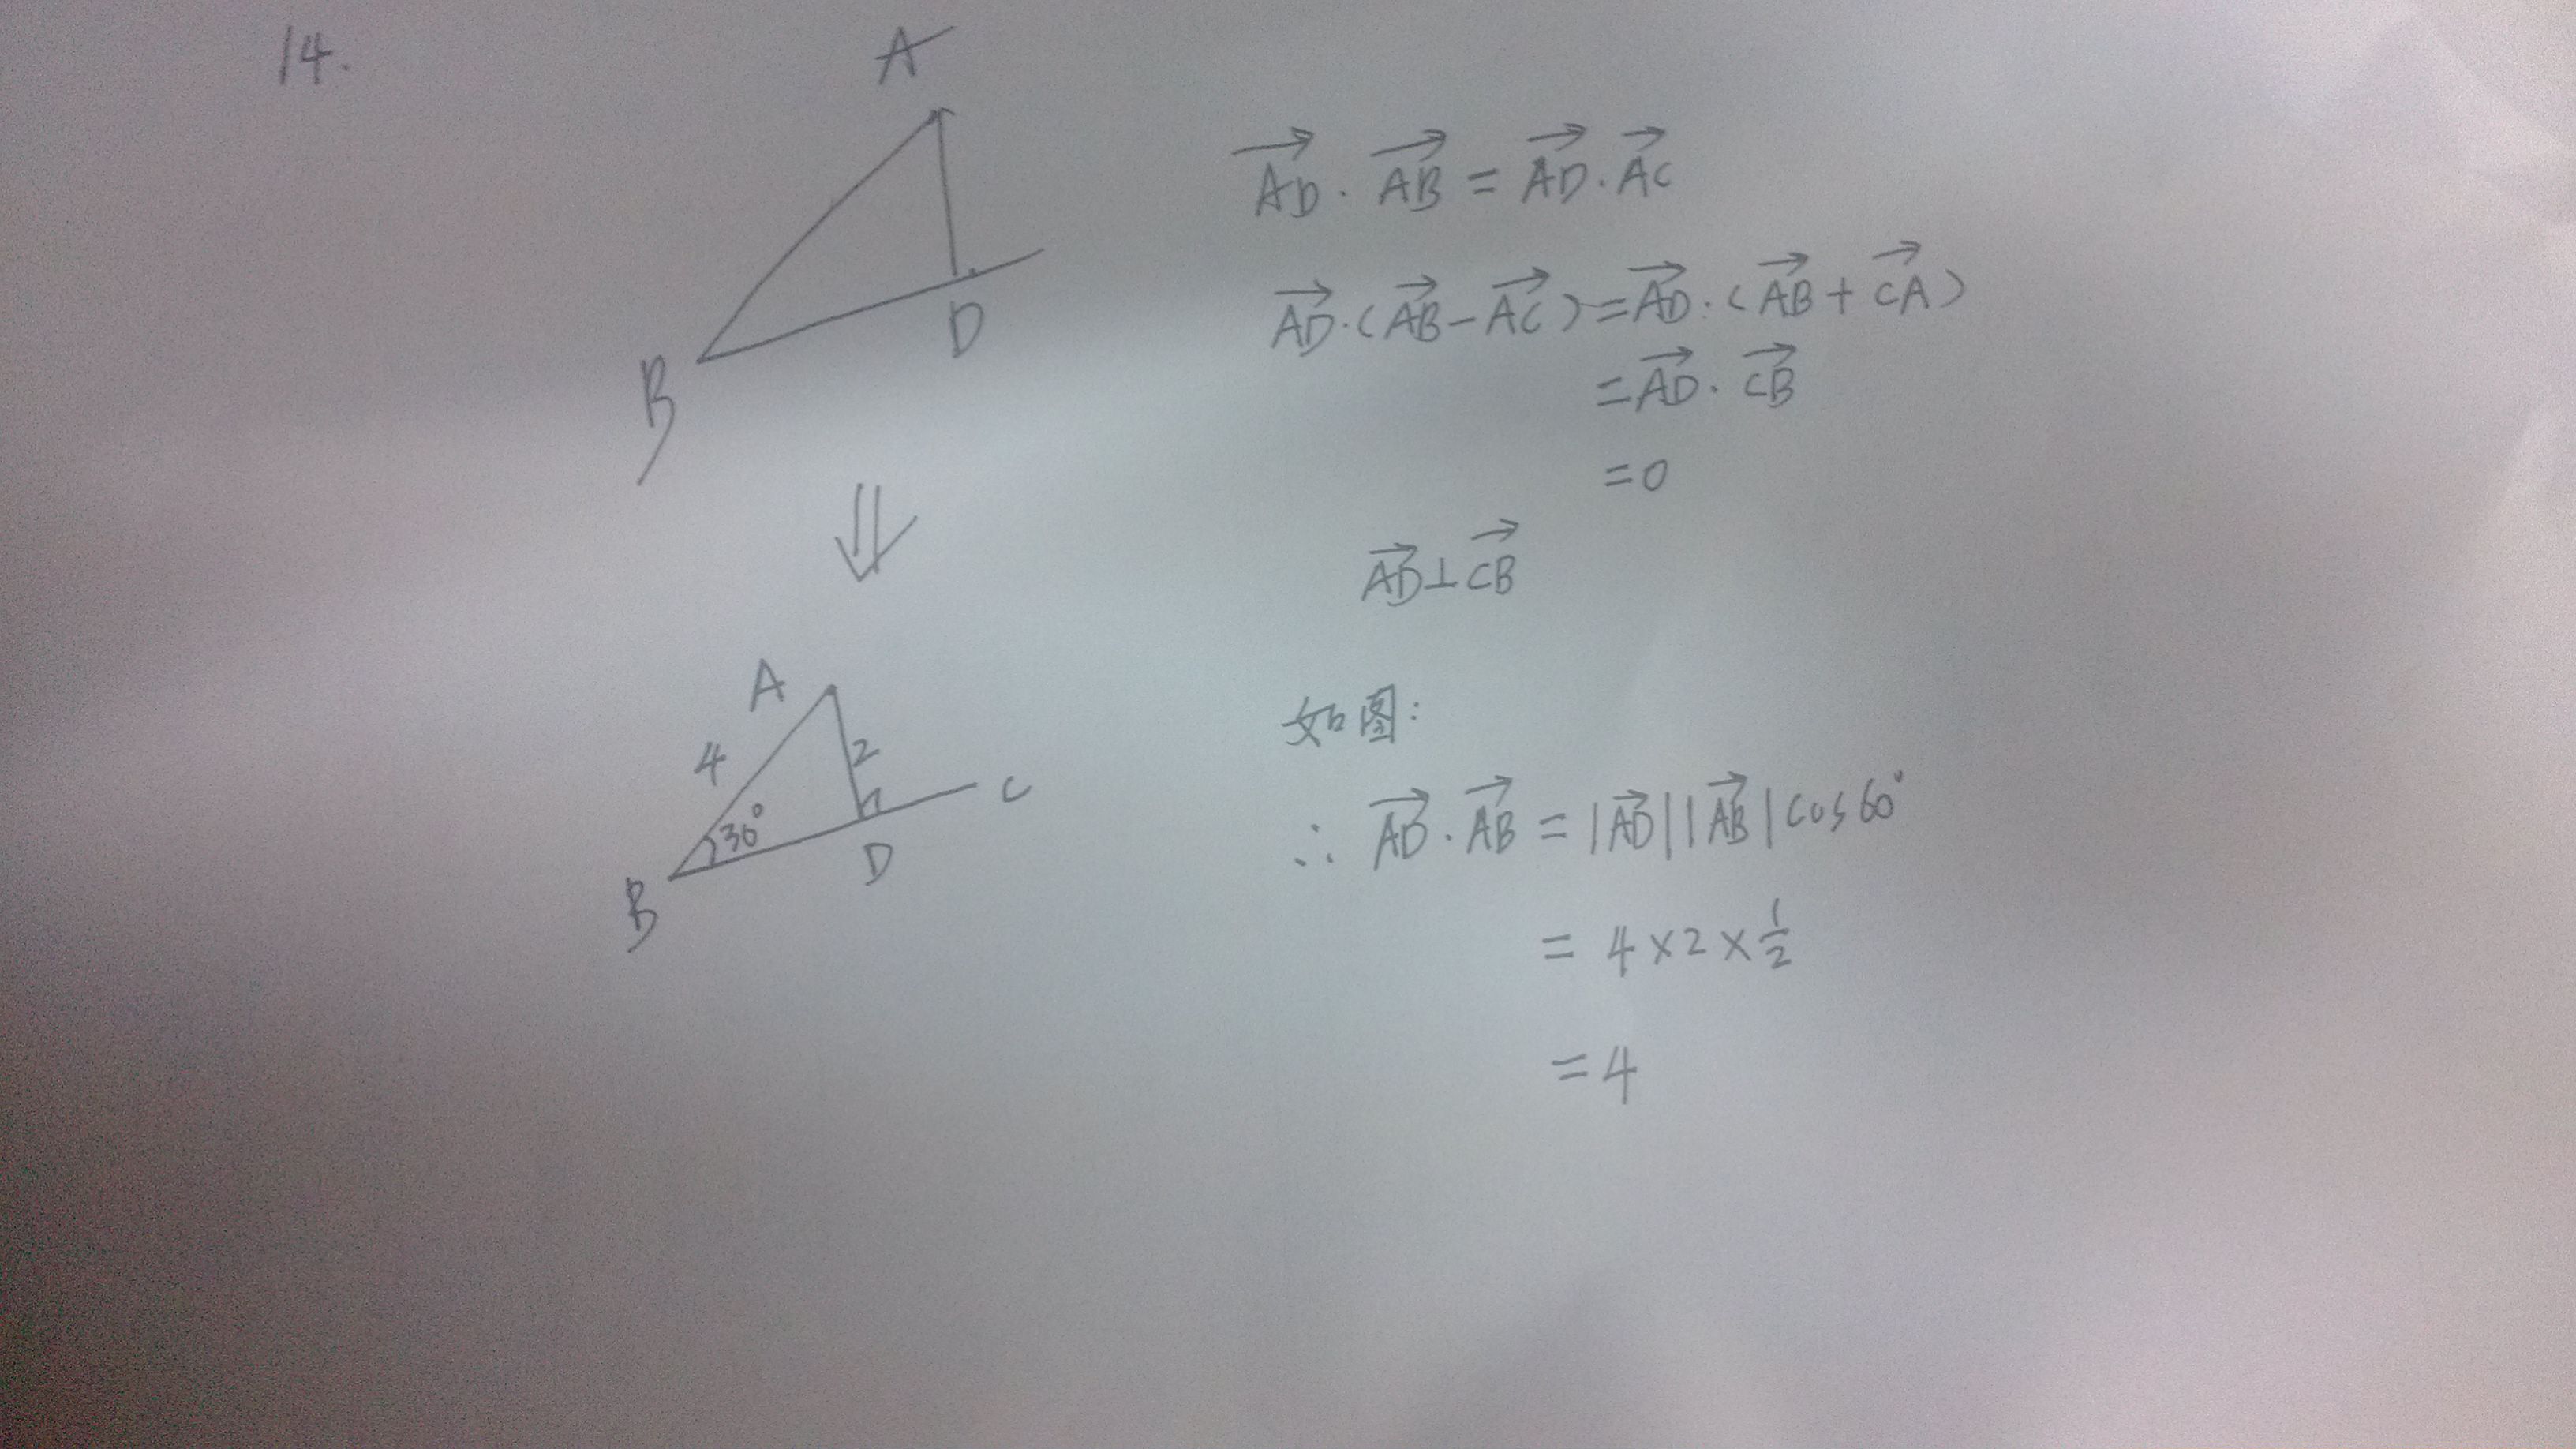 14.
A
B
D
⇓
A
4
2
30°
B
D
C
→AD · →AB = →AD · →AC
→AD · (→AB − →AC) = →AD · (→AB + →CA)
= →AD · →CB
= 0
→AD ⊥ →CB
如图:
∴ →AD · →AB = |→AD||→AB| cos 60°
= 4 × 2 × 1/2
= 4